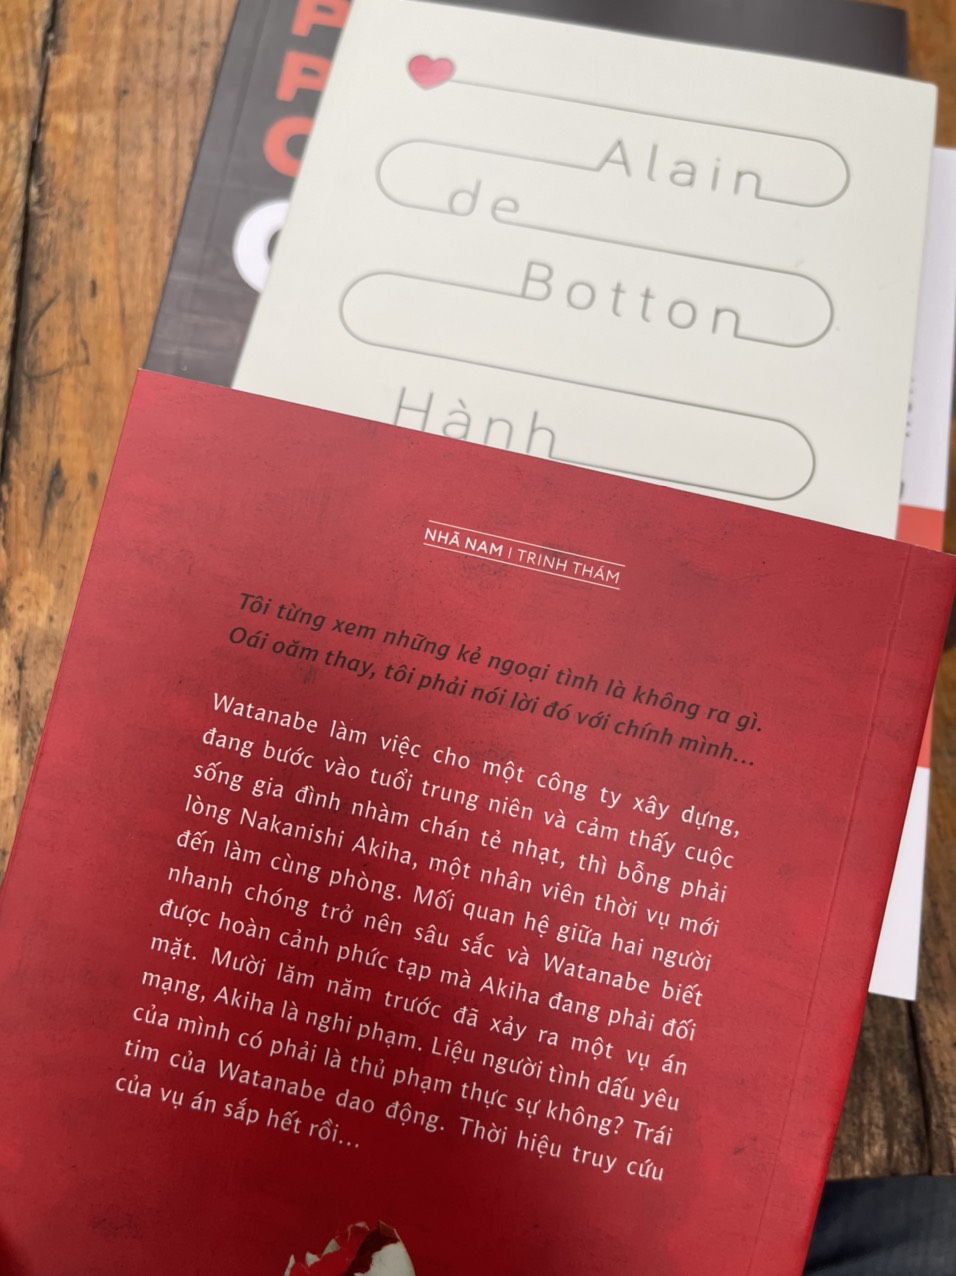 P
P
C
Alain
de
Botton
Hành
NHÃ NAM | TRINH THÁM
Tôi từng xem những kẻ ngoại tình là không ra gì.
Oái oăm thay, tôi phải nói lời đó với chính mình...
Watanabe làm việc cho một công ty xây dựng,
đang bước vào tuổi trung niên và cảm thấy cuộc
sống gia đình nhàm chán tẻ nhạt, thì bỗng phải
lòng Nakanishi Akiha, một nhân viên thời vụ mới
đến làm cùng phòng. Mối quan hệ giữa hai người
nhanh chóng trở nên sâu sắc và Watanabe biết
được hoàn cảnh phức tạp mà Akiha đang phải đối
mặt. Mười lăm năm trước đã xảy ra một vụ án
mạng, Akiha là nghi phạm. Liệu người tình dấu yêu
của mình có phải là thủ phạm thực sự không? Trái
tim của Watanabe dao động. Thời hiệu truy cứu
của vụ án sắp hết rồi...